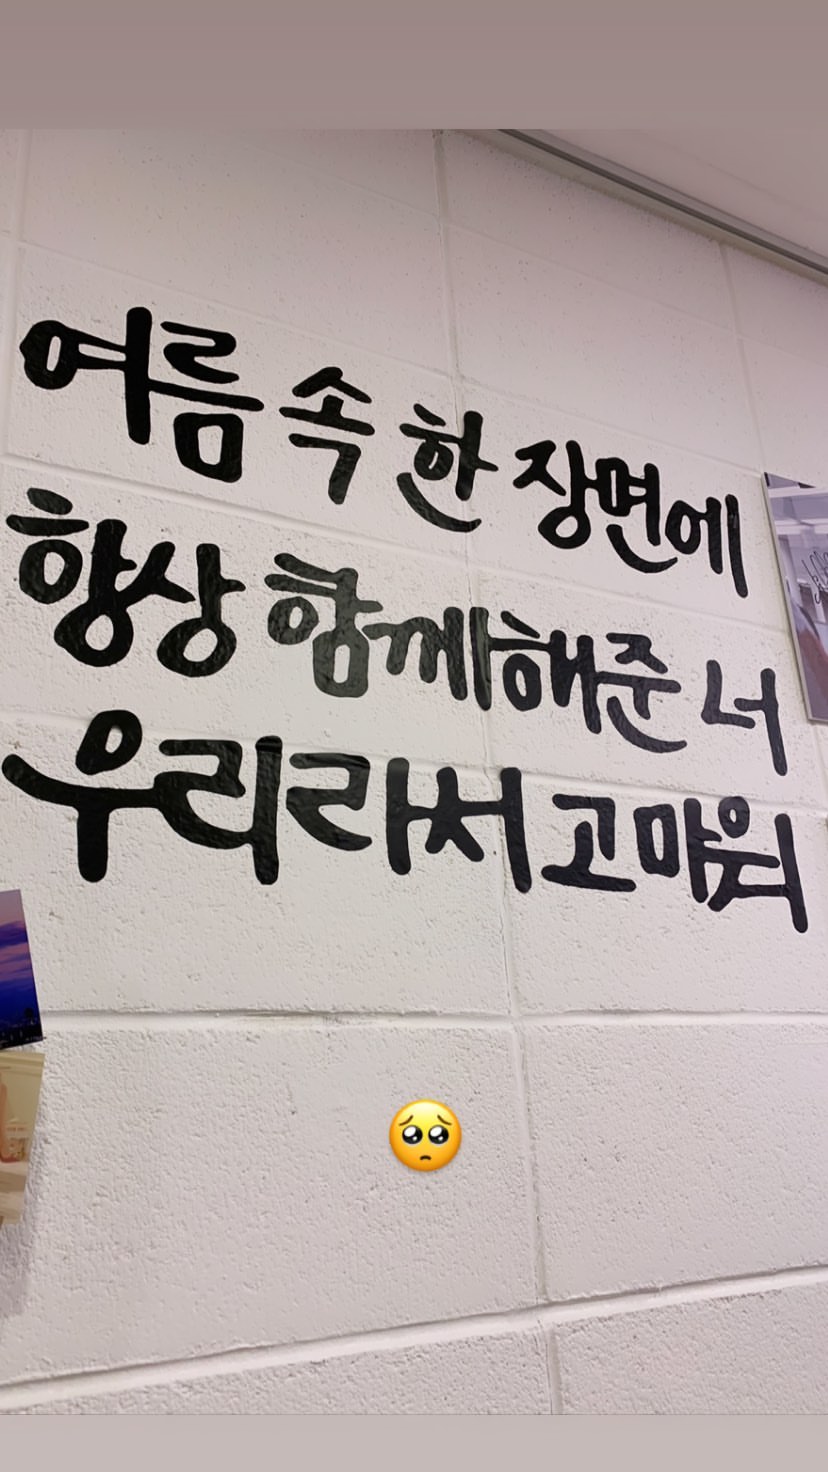 여름 속 한 장면에
항상 함께해준 너
우리라서 고마워